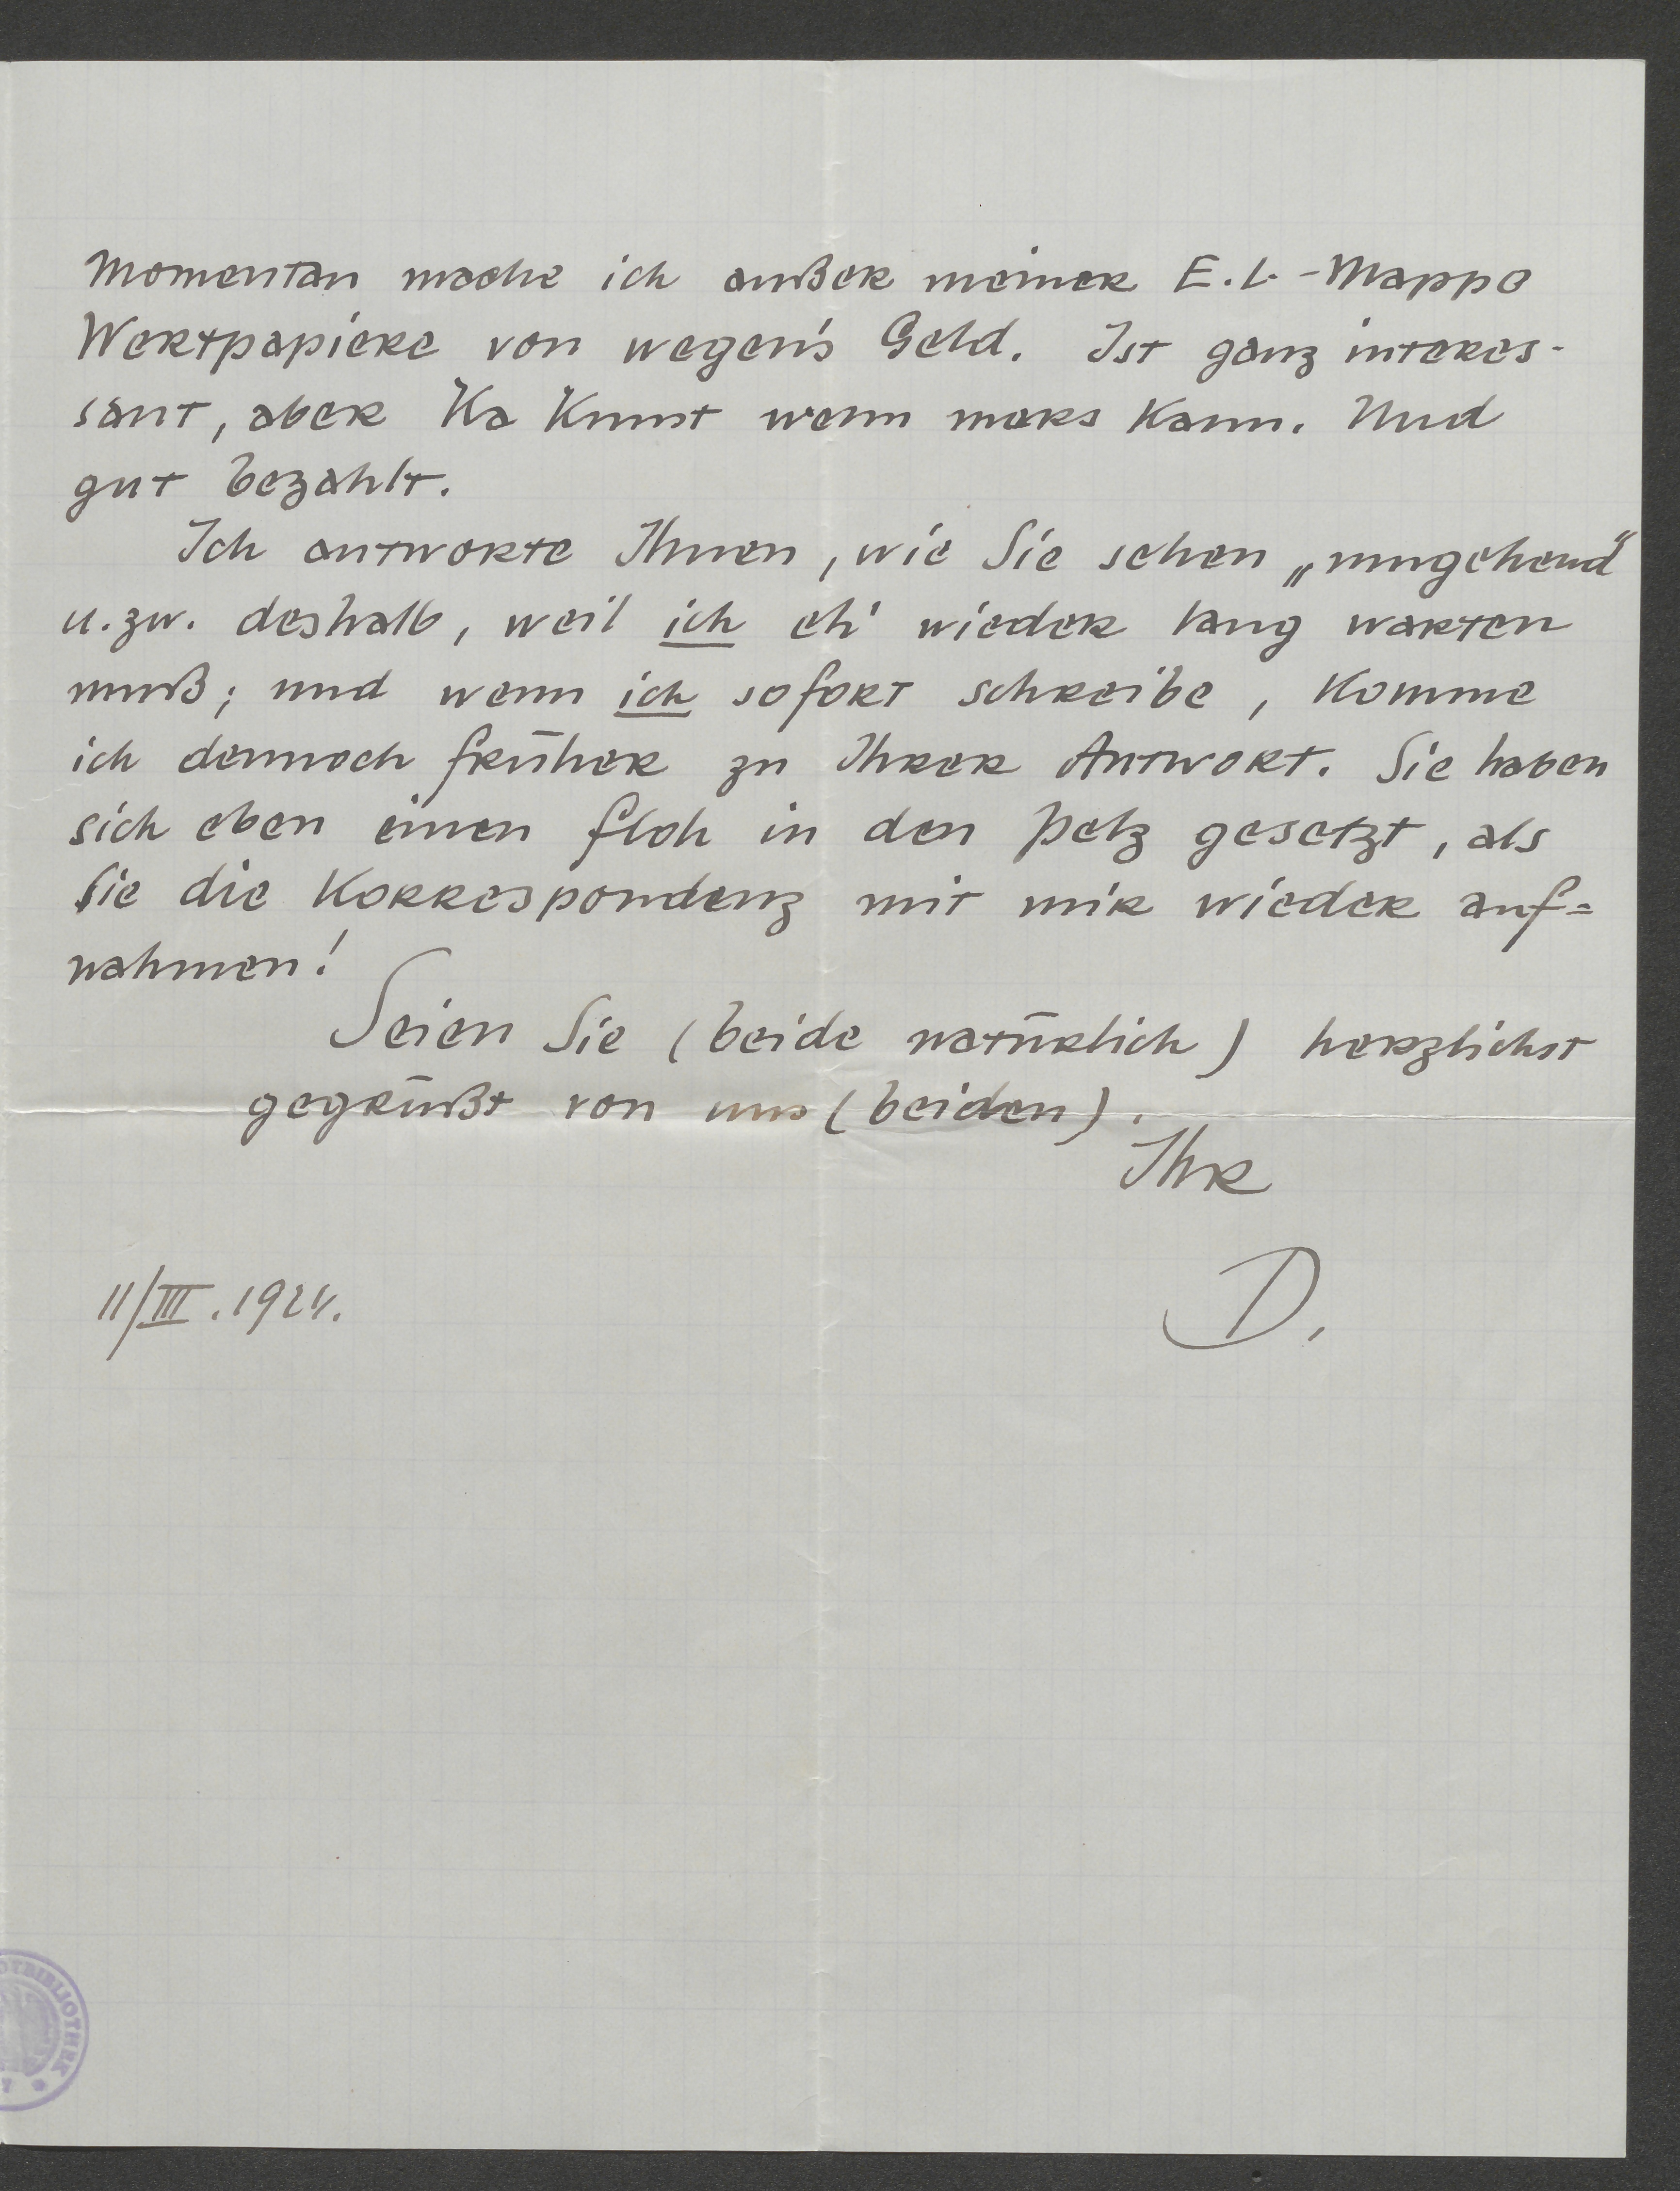 Momentan mache ich außer meiner E.L.-Mappe
Wertpapiere von wegen's Geld. Ist ganz interes-
sant, aber Ka Kunst wenn mers kann. Und
gut bezahlt.
Ich antworte Ihnen, wie Sie sehen „umgehend"
u.zw. deshalb, weil ich eh' wieder lang warten
muß; und wenn ich sofort schreibe, komme
ich dennoch früher zu Ihrer Antwort. Sie haben
sich eben einen Floh in den Pelz gesetzt, als
Sie die Korrespondenz mit mir wieder auf=
nahmen!
Seien Sie (beide natürlich) herzlichst
gegrüßt von uns (beiden).
Ihr
D.
11/III.1924.
OTBIBLIOTHEK